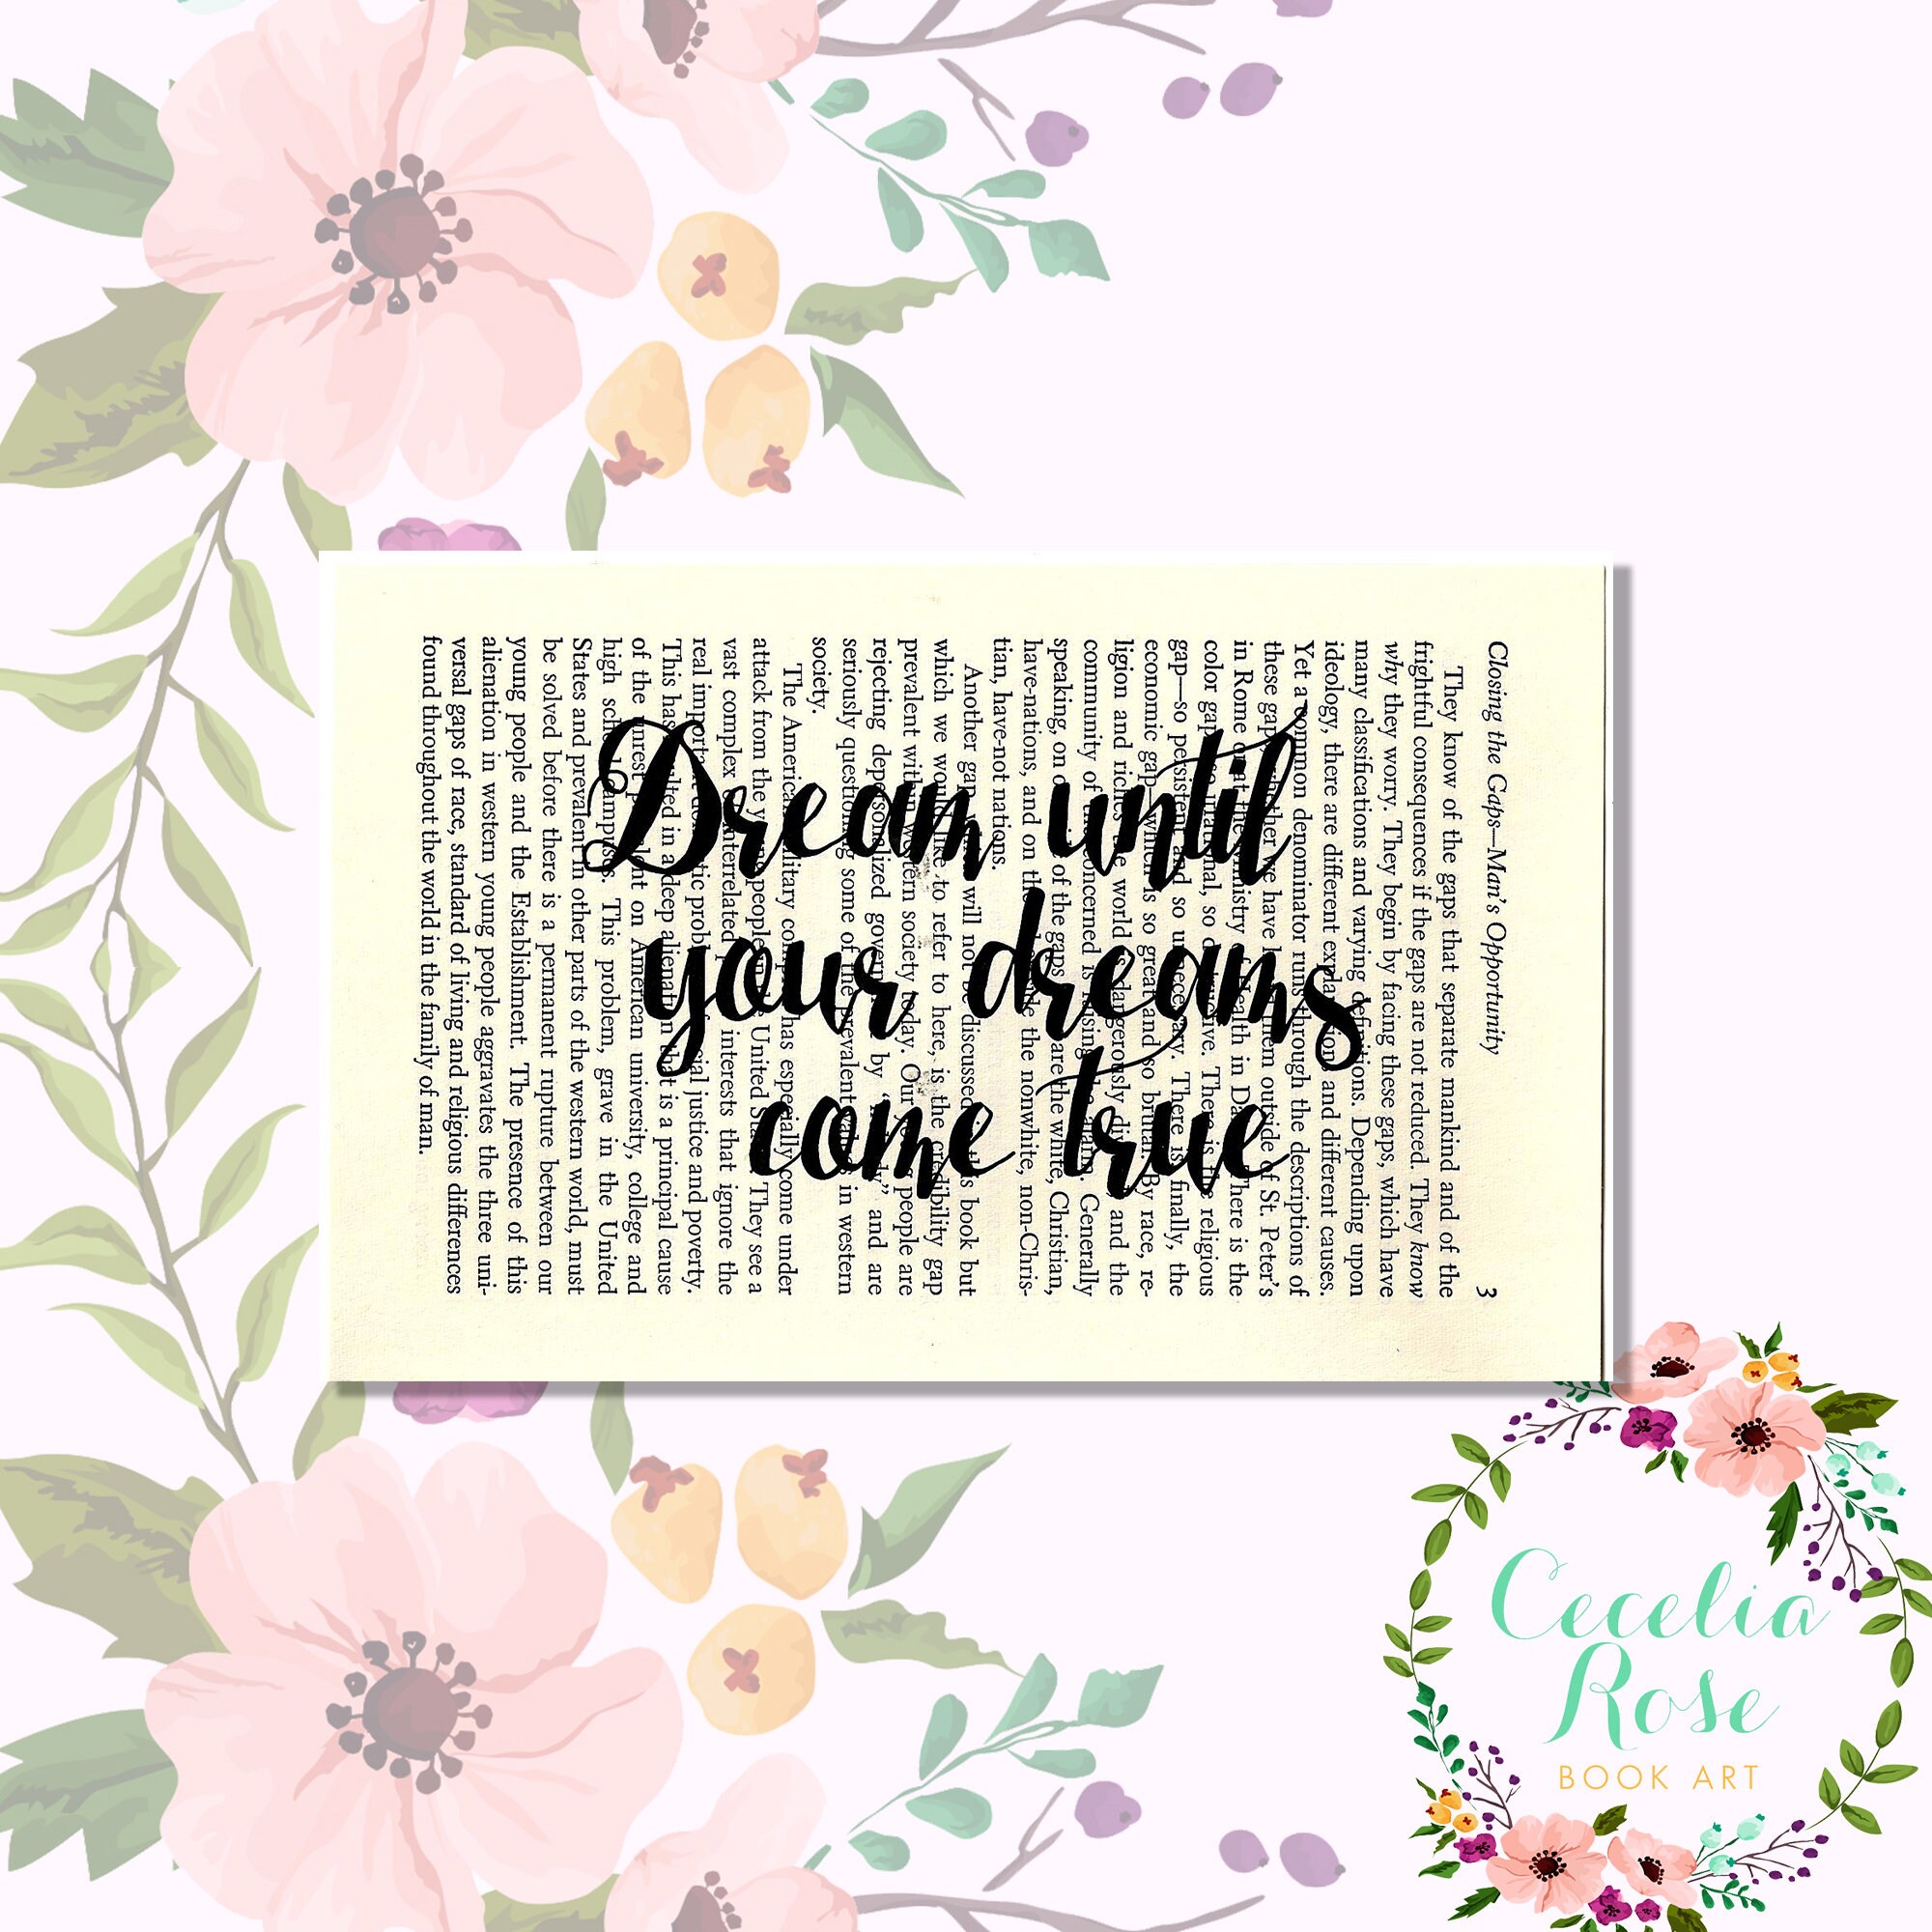 Dream until
your dreams
come true
Closing the Gaps—Man's Opportunity 3
They know of the gaps that separate mankind and of the
frightful consequences if the gaps are not reduced. They know
why they worry. They begin by facing these gaps, which have
many classifications and varying definitions. Depending upon
ideology, there are different explanations and different causes.
Yet a common denominator runs through the descriptions of
these gaps whether we have them outside of St. Peter's
in Rome or at the Ministry of Health in There is the
color gap so irrational, so There is the religious
gap—so persistent and so unnecessary. There is, finally, the
economic gap—which is so great and so brutal. By race, re-
ligion and riches the world is dangerously and the
community of the concerned is again. Generally
speaking, on of the gaps are the white, Christian,
have-nations, and on the the nonwhite, non-Chris-
tian, have-not nations.
Another gap will not be discussed in this book but
which we would like to refer to here, is the credibility gap
prevalent within western society today. Our young people are
rejecting depersonalized by and are
seriously questioning some of the prevalent values in western
society.
The American military has especially come under
attack from the young people United They see a
vast complex interrelated interests that ignore the
real important domestic problems social justice and poverty.
This has resulted in a deep alienation that is a principal cause
of the unrest on American university, college and
high school campuses. This problem, grave in the United
States and prevalent in other parts of the western world, must
be solved before there is a permanent rupture between our
young people and the Establishment. The presence of this
alienation in western young people aggravates the three uni-
versal gaps of race, standard of living and religious differences
found throughout the world in the family of man.
Cecelia
Rose
BOOK ART